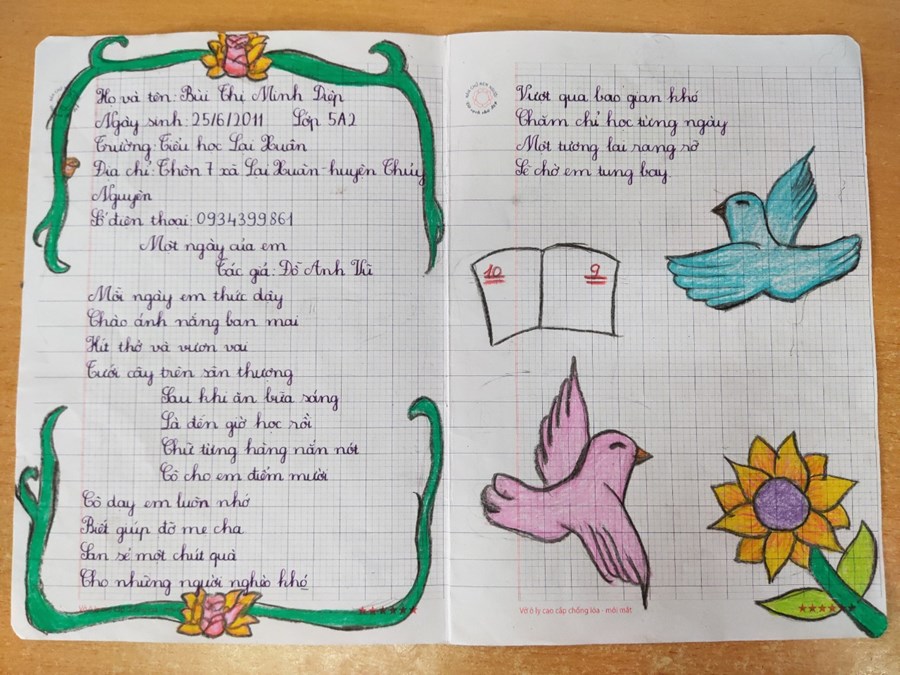 Họ và tên: Bùi Thị Minh Diệp
Ngày sinh: 25/6/2011 Lớp 5A2
Trường: Tiểu học Lai Xuân
Địa chỉ: Thôn 7 xã Lai Xuân - huyện Thủy
Nguyên
Số điện thoại: 0934399861
Một ngày của em
Tác giả: Đỗ Anh Vũ
Mỗi ngày em thức dậy
Chào ánh nắng ban mai
Hít thở và vươn vai
Tưới cây trên sân thượng
Sau khi ăn bữa sáng
Là đến giờ học rồi
Chữ từng hàng nắn nót
Cô cho em điểm mười
Cô dạy em luôn nhớ
Biết giúp đỡ mẹ cha
San sẻ một chút quà
Cho những người nghèo khó
Vở ô ly cao cấp chống lóa
Vượt qua bao gian khó
Chăm chỉ học từng ngày
Một tương lai rạng rỡ
Sẽ chờ em tung bay.
10 9
Vở ô ly cao cấp chống lóa - mỏi mắt